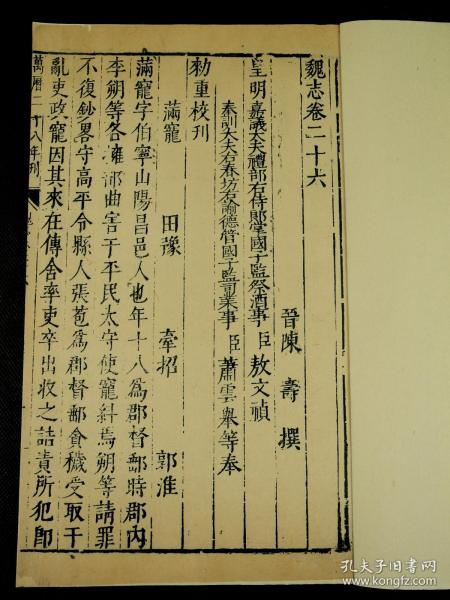 魏志卷二十六
晉陳壽撰
皇明嘉議大夫禮部右侍郎掌國子監祭酒事臣敖文禎
奉訓大夫右春坊右諭德管國子監司業事臣蕭雲舉等奉
勑重校刊
滿寵 田豫 牽招 郭淮
滿寵字伯寧山陽昌邑人也年十八爲郡督郵時郡內
李朔等各擁部曲害于平民太守使寵糾焉朔等請罪
不復鈔畧守高平令縣人張苞爲郡督郵貪穢受取干
亂吏政寵因其來在傳舍率吏卒出收之詰責所犯卽
萬曆二十八年刊
孔夫子旧书网
www.kongfz.com